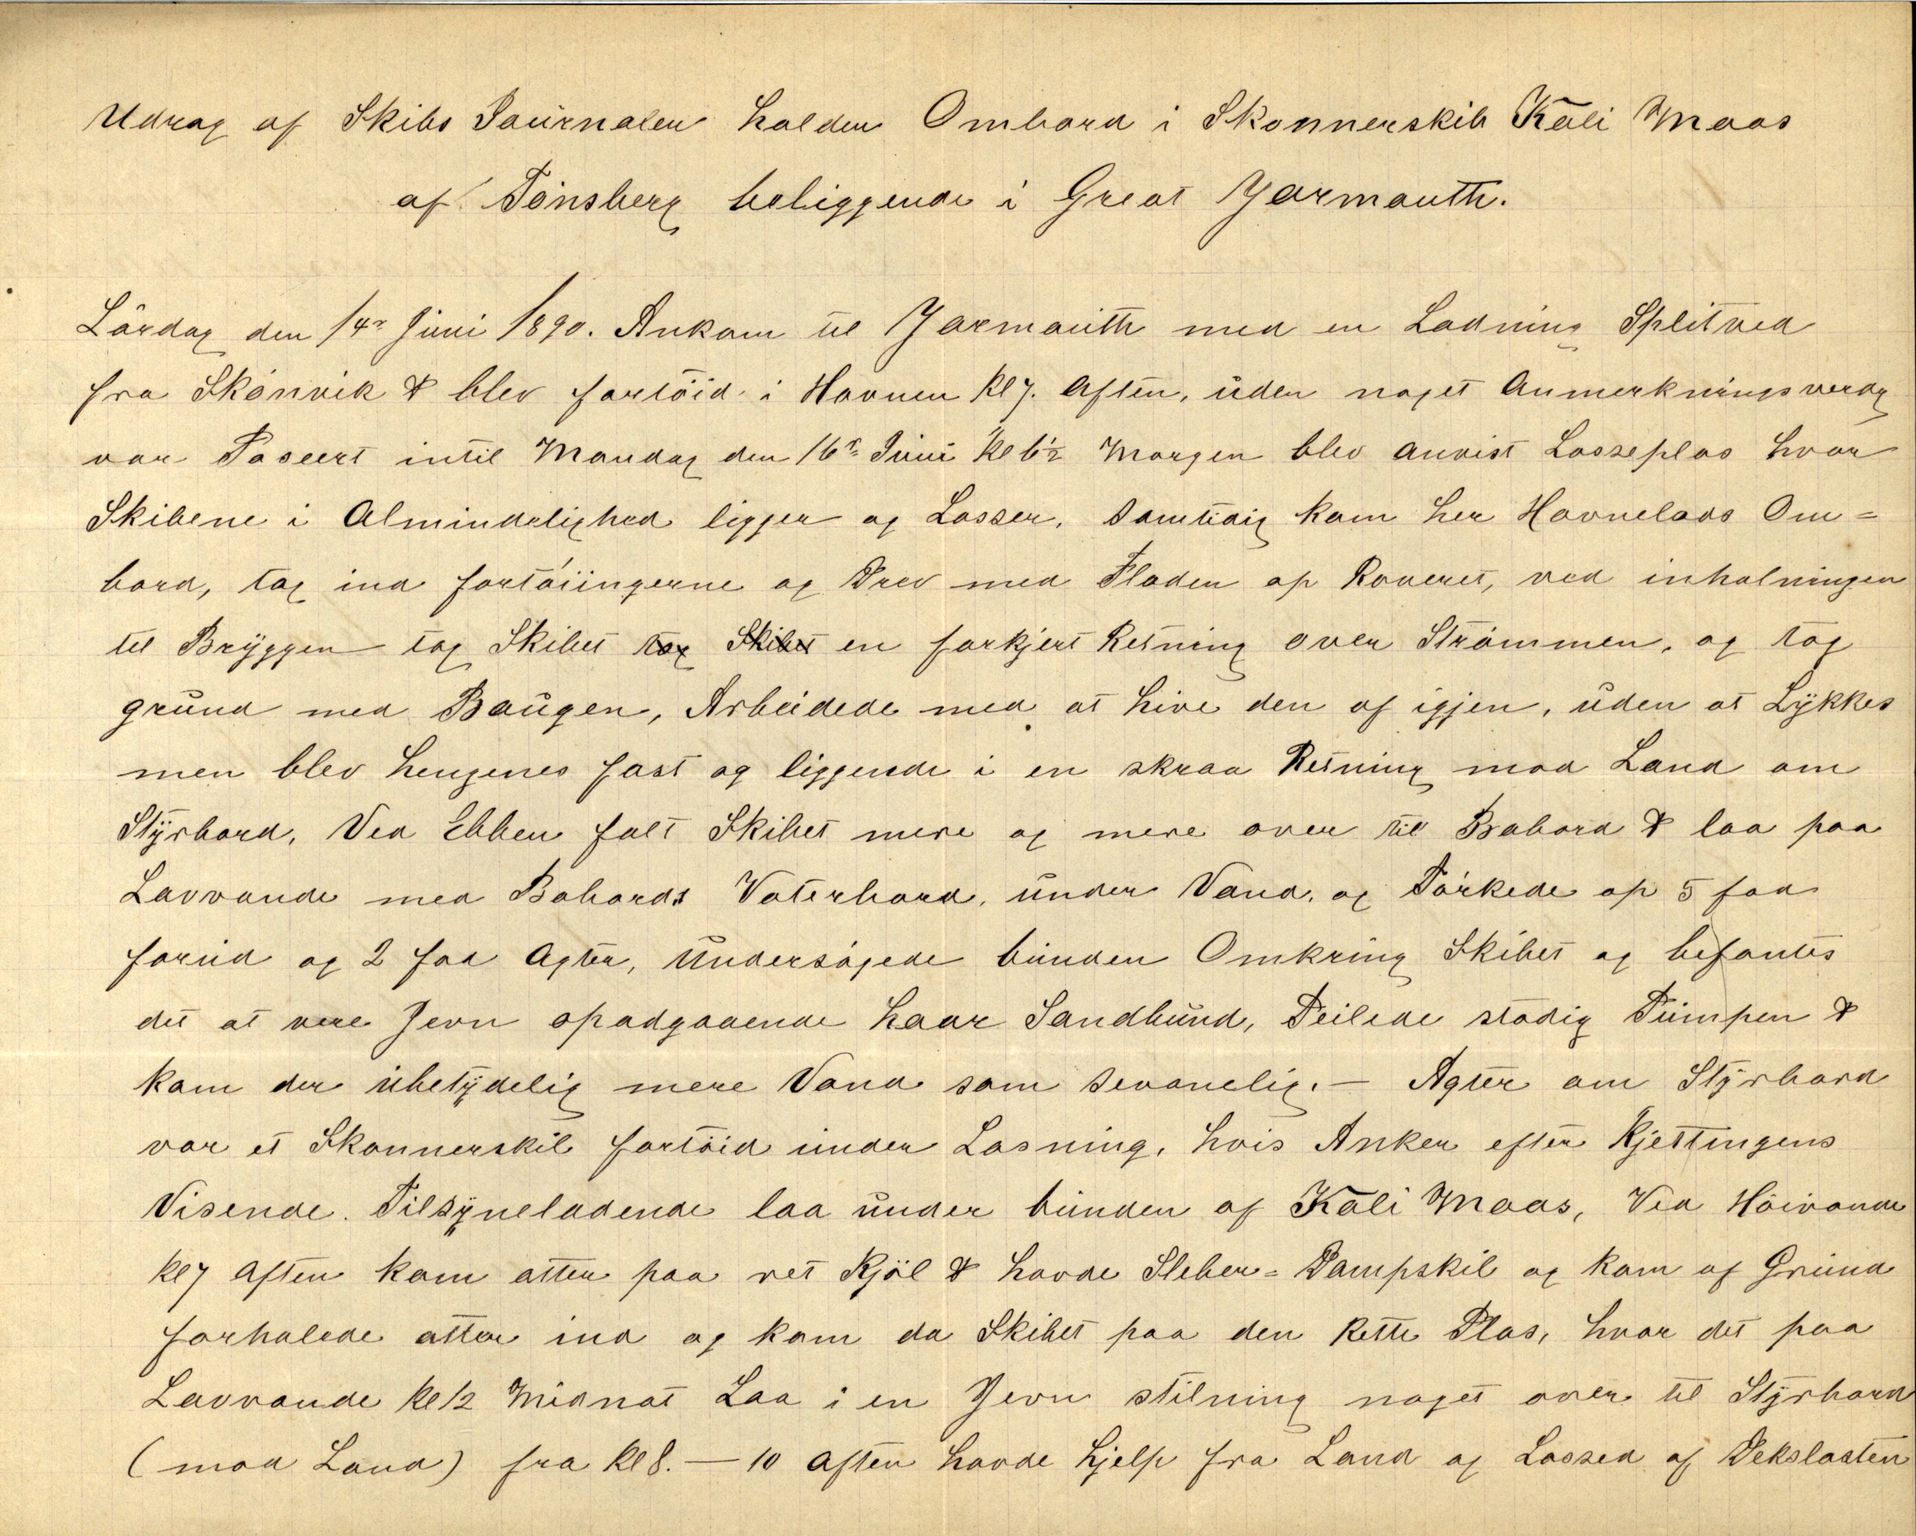 Udrag af Skibs Journalen holden Ombord i Skonnerskib Kali Maas
af Tønsberg beliggende i Great Yarmouth.
Lørdag den 14de Juni 1890. Ankom til Yarmouth med en Ladning Splitved
fra Skønvik & blev fortøid i Havnen Kl 7. Aften, uden noget Anmerkningsverdg
var Paseert intil Mandag den 16de Juni Kl 6½ Morgen blev anvist Losseplas hvor
Skibene i Almindelighed ligger og Losser, Samtidig kom her Havnelods Om=
bord, tog ind fortøiingerne og Drev med Floden op Roveret, ved inhalningen
til Bryggen tog Skibet tog Skibet en forkjert Retning over Strømmen, og tog
grund med Baugen, Arbeidede med at hive den af igjen, uden at Lykkes
men blev hengenes fast og liggende i en skraa Retning mod Land om
Styrbord, Ved Ebben falt Skibet mere og mere over til Babord & laa paa
Lavvande med Babords Vaterbord, under Vand, og Tørkede op 5 fod
forud og 2 fod Agter, Undersøgede bunden Omkring Skibet og befantes
det at vere Jevn opadgaaende haar Sandbund, Peilede stadig Pumpen &
kom der ubetydelig mere Vand som sevanelig. — Agter om Styrbord
var et Skonnerskib fortøid under Losning, hvis Anker efter Kjettingens
Visende Tilsyneladende laa under bunden af Kali Maas, Ved Høivande
Kl 7 Aften kom atter paa ret Kjøl & havde Sleber= Dampskib og kom af Grund
forhalede atter ind og kom da Skibet paa den Rette Plas, hvor det paa
Lavvande Kl ½ Midnat Laa i en Jevn stilning noget over til Styrbord
(mod Land) fra Kl 8. — 10 Aften havde hjelp fra Land og Lossed af Dekslasten